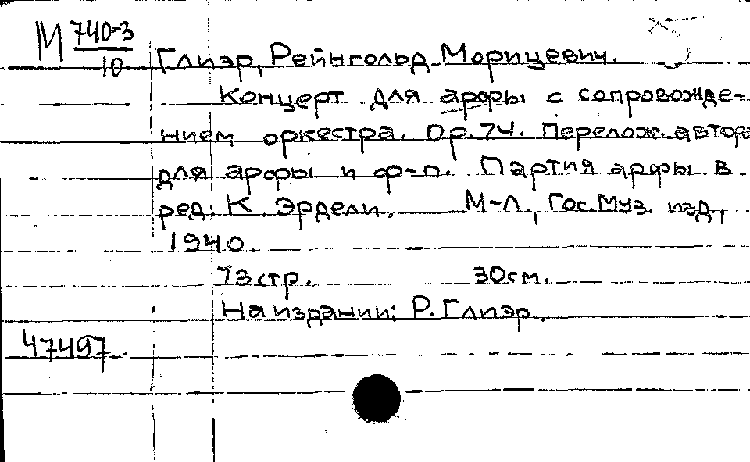 М 740-3
10
Глиэр, Рейнгольд Морицевич.
Концерт для арфы с сопровожде-
нием оркестра. Op. 74. Перелож. автора
для арфы и ф-п. Партия арфы в
ред. К. Эрдели. М-Л., Гос. Муз. изд,
1940.
73 стр. 30 см.
На издании: Р. Глиэр.
47497